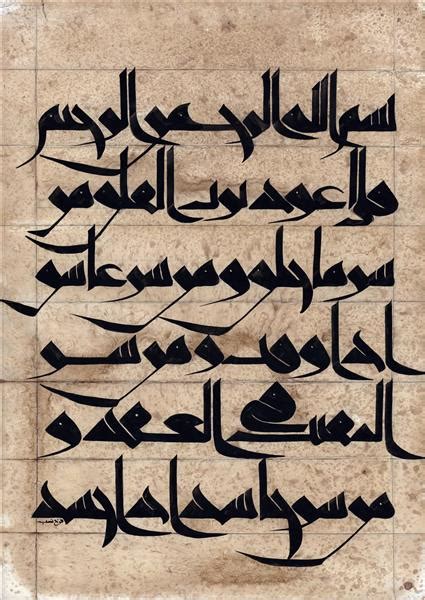 بسم الله الرحمن الرحيم
قل اعوذ برب الفلق من
شر ما خلق و من شر غاسق
اذا وقب و من شر
النفثت في العقد و
من شر حاسد اذا حسد